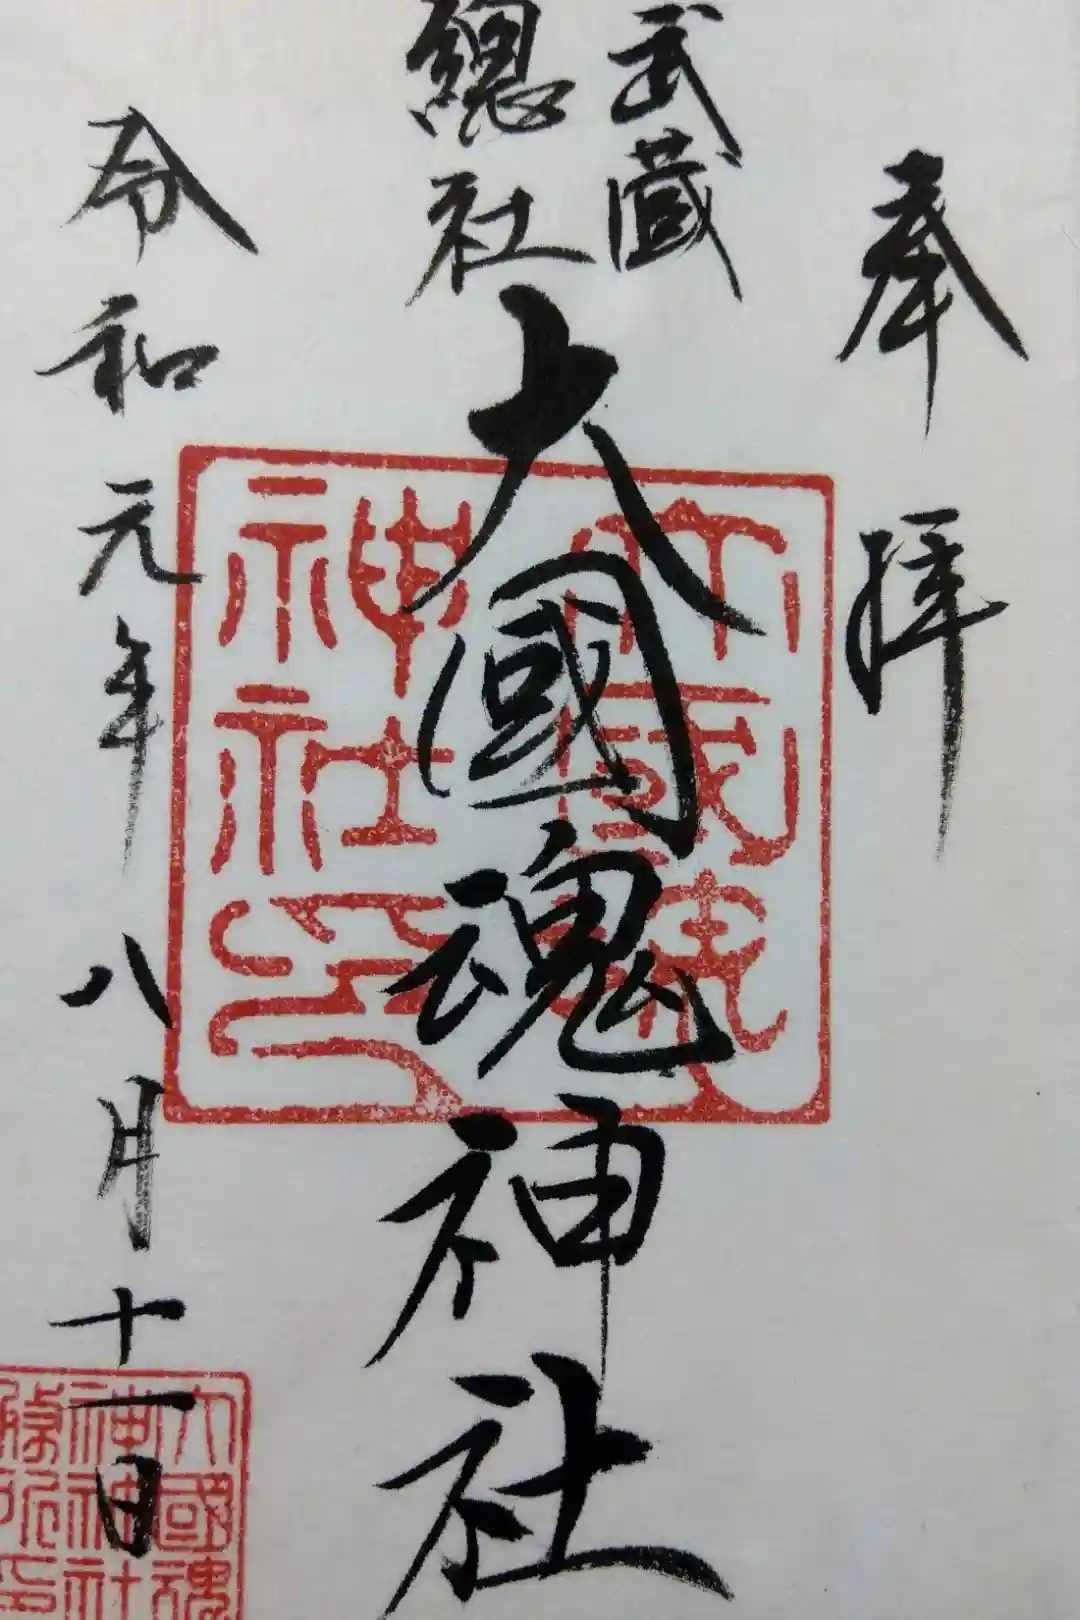 奉拝
武蔵
總社
大國魂神社
令和元年八月十一日
大國魂
神社印
大國魂
神神社